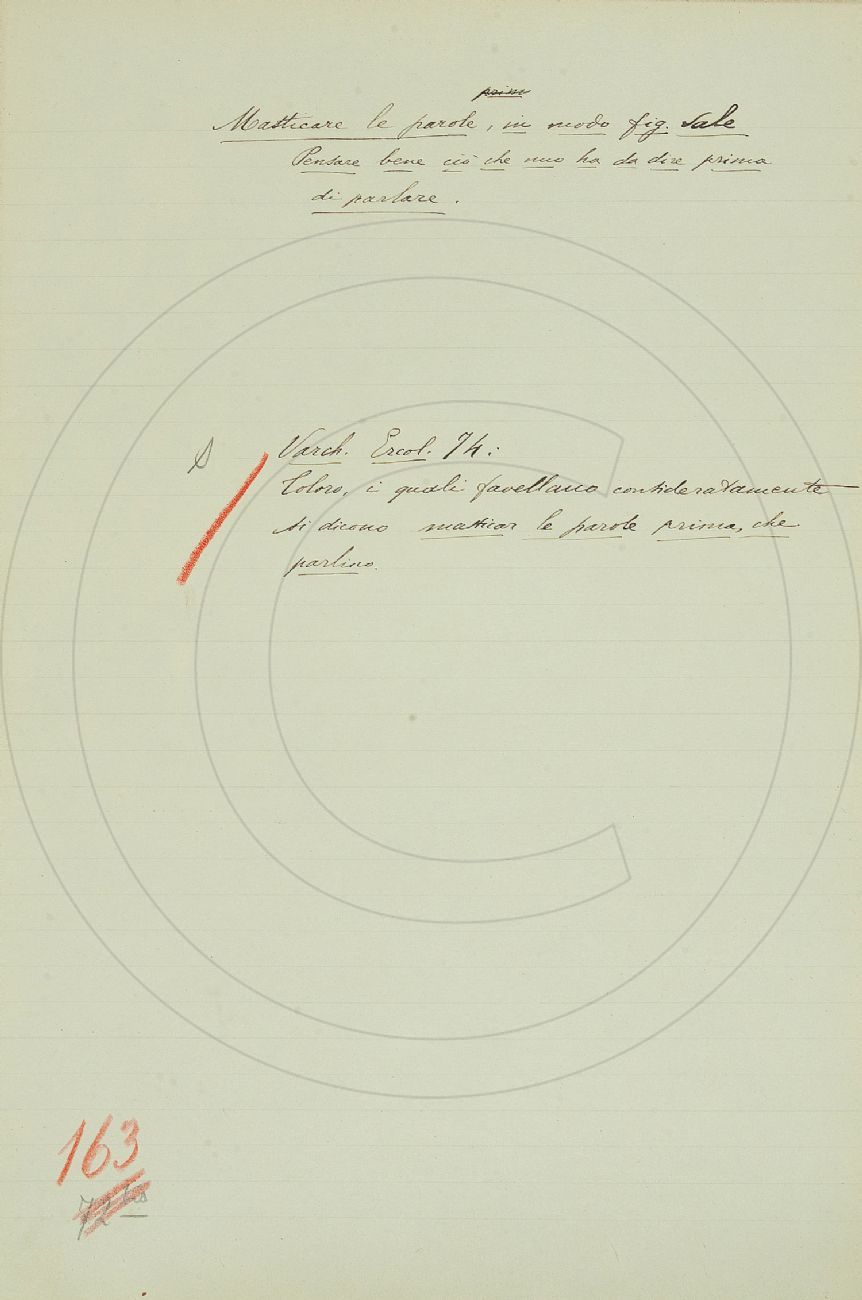 prim
Masticare le parole, in modo fig. Vale
Pensare bene ciò che uno ha da dire prima
di parlare.
Varch. Ercol. 74:
Coloro, i quali favellano consideratamente
si dicono masticar le parole prima, che
parlino.
163
72 bis